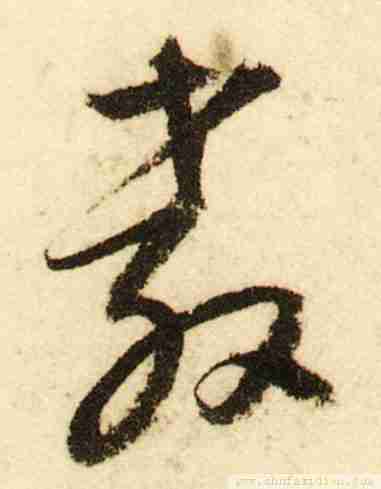 教
www.shufazidian.com